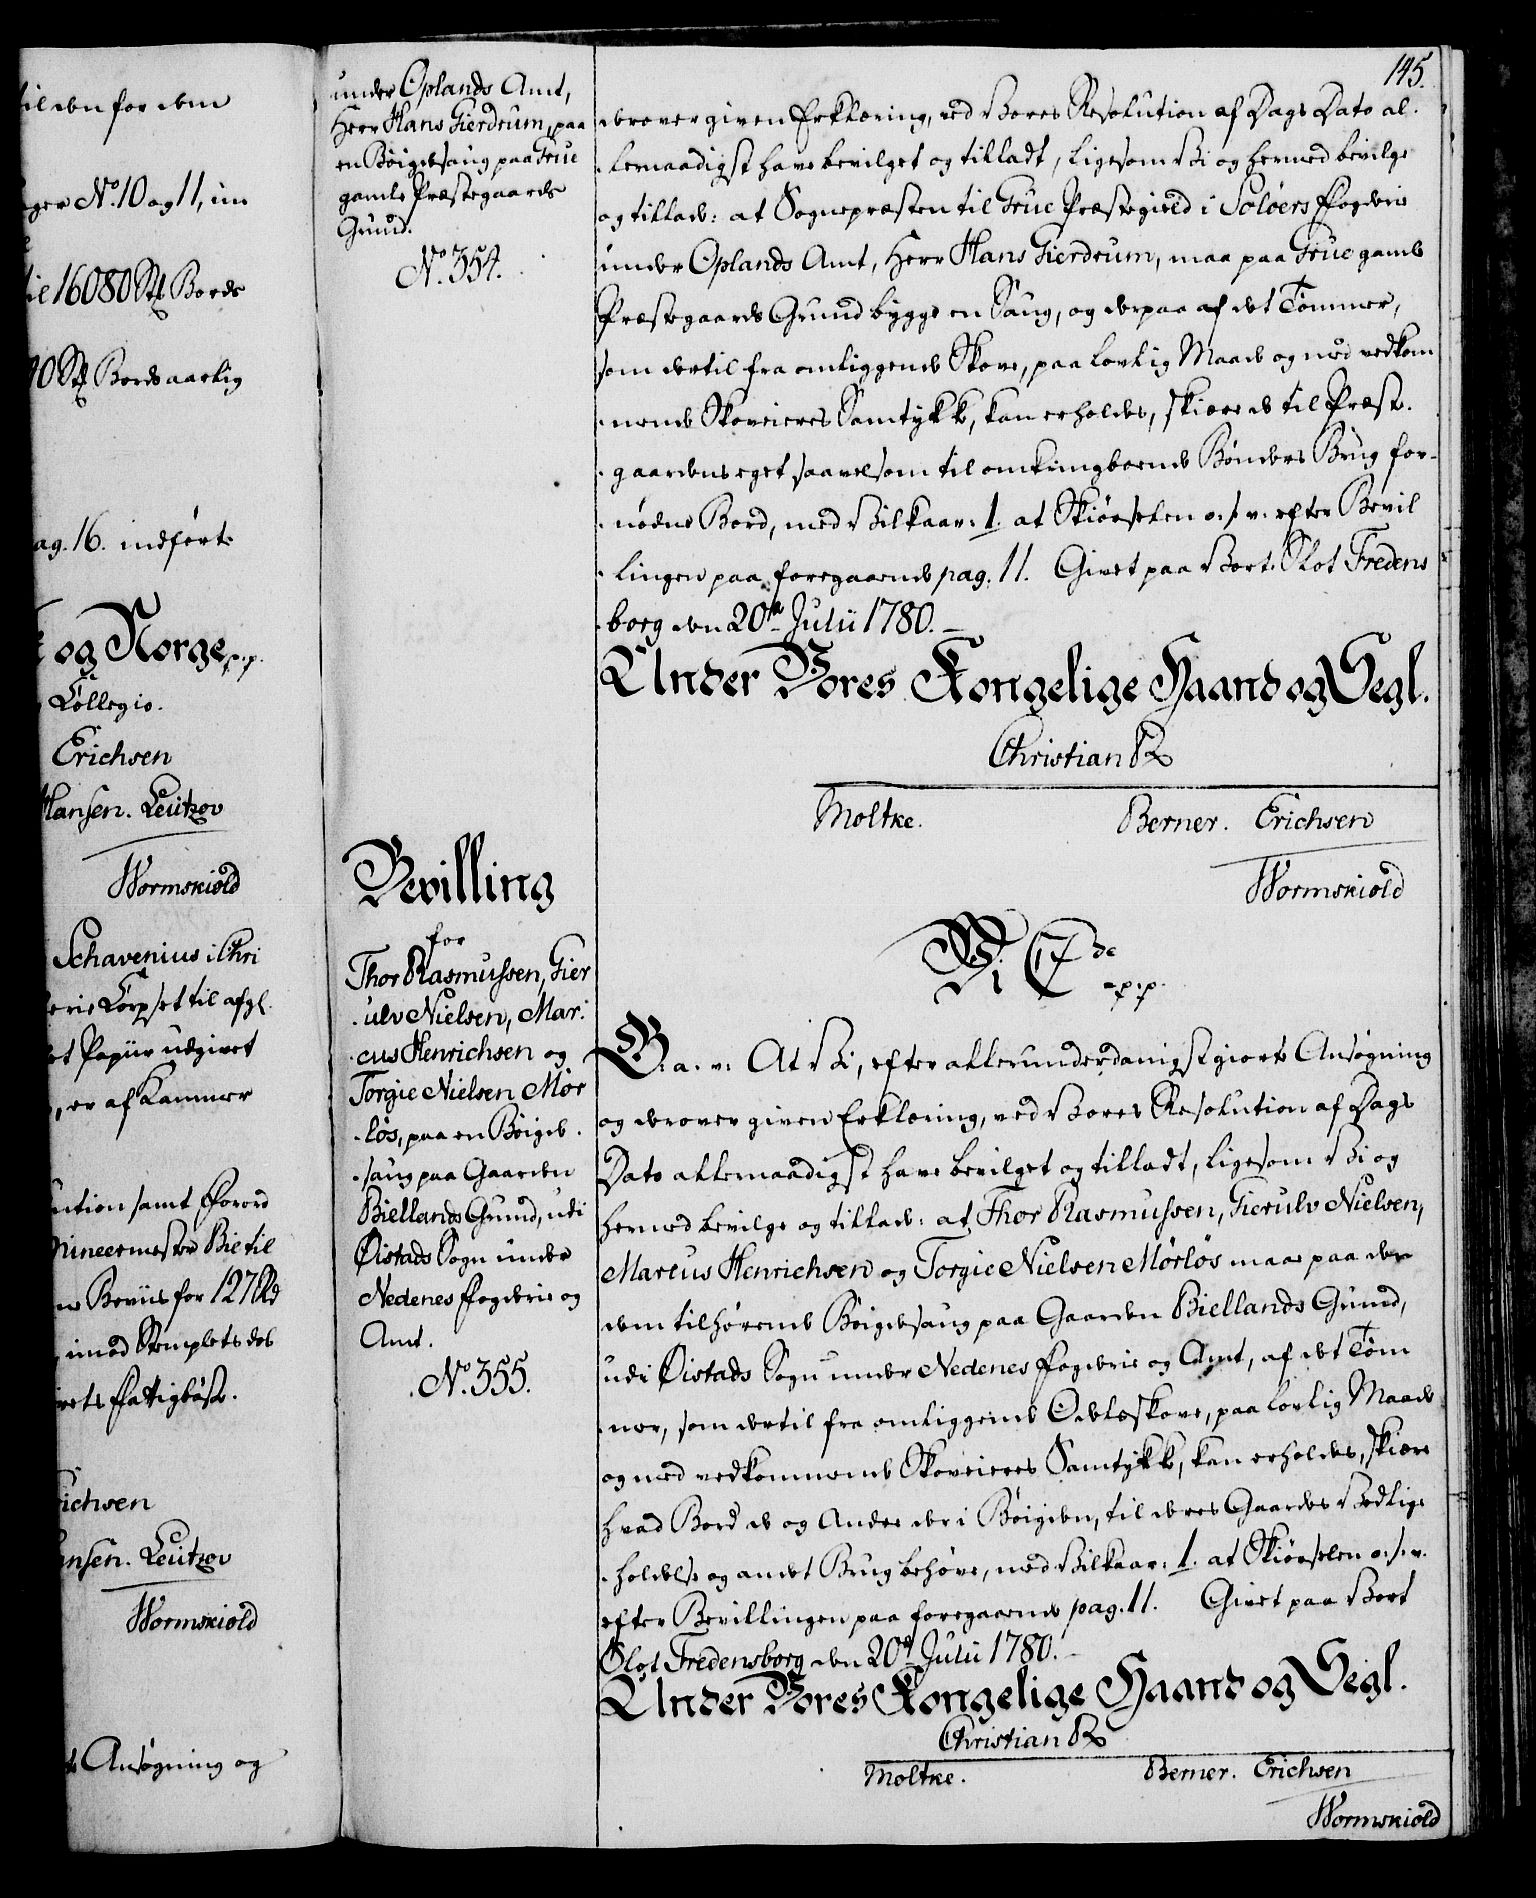 til den for dem
ger No. 10 og 11, im
til 16080 Stk Bords
0 Stk Bords aarlig
ag. 16. indførte
og Norge p. p.
Collegio.
Erichsen
Hansen. Leützov
Wormskiold
Schavenius i Chri
erie Corpset til afgl.
et Papiir udgivet
, er af Kammer
ution samt Forord
mineermester Bie til
Beviis for 127 Rd
imod Stemplets deb
ets Fattigbøsse.
richsen
ansen. Leützov
Wormskiold
Ansøgning og
under Oplands Amt,
Herr Hans Gierdrum, paa
en Bøigdesaug paa Grue
gamle Præstegaards
Grund.
No. 354.
145.
derover given Erklæring, ved Vores Resolution af Dags Dato al-
lernaadigst have bevilget og tilladt, ligesom Vi og hermed bevilge
og tillade: at Sognepræsten til Grue Præstegield i Soløers Fogderie
under Oplands Amt, Herr Hans Gierdrum, maa paa Grue gamle
Præstegaards Grund bygge en Saug, og derpaa af det Tømmer,
som dertil fra omliggende Skove, paa lovlig Maade og med vedkom
mende Skoveieres Samtykke, kan erholdes, skiære de til Præste-
gaardens eget saavelsom til omkringboende Bønders Brug for-
nødne Bord, med Vilkaar: 1. at Skiørselen o. s. v. efter Bevil
lingen paa foregaaende pag. 11. Givet paa Vort Slot Fredens
borg den 20de Julii 1780.
Under Vores Kongelige Haand og Segl.
Christian R
Moltke. Berner. Erichsen
Wormskiold
Bevilling
for
Thor Rasmussen, Gier
ulv Nielsen, Mar-
cus Henrichsen og
Torgie Nielsen Mør
løs, paa en Bøigde-
saug paa Gaarden
Biellands Grund, udi
Øistads Sogn under
Nedenes Fogderie og
Amt.
No. 355.
Vi C 7de p. p.
G. a. v. At Vi, efter allerunderdanigst giorte Ansøgning
og derover given Erklæring, ved Vores Resolution af Dags
Dato allernaadigst have bevilget og tilladt, ligesom Vi og
hermed bevilge og tillade: at Thor Rasmussen, Gierulv Nielsen,
Marcus Henrichsen og Torgie Nielsen Mørløs maae paa den
dem tilhørende Bøigdesaug paa Gaarden Biellands Grund,
udi Øistads Sogn under Nedenes Fogderie og Amt, af det Tøm
mer, som dertil fra omliggende Odelsskove, paa lovlig Maade
og med vedkommende Skoveieres Samtykke, kan erholdes, skiære
hvad Bord de og Andre der i Bøigden, til deres Gaardes Vedlige
holdelse og andet Brug behøve, med Vilkaar: 1. at Skiørselen o. s. v.
efter Bevillingen paa foregaaende pag. 11. Givet paa Vort
Slot Fredensborg den 20de Julii 1780.
Under Vores Kongelige Haand og Segl.
Christian R
Moltke. Berner. Erichsen
Wormskiold